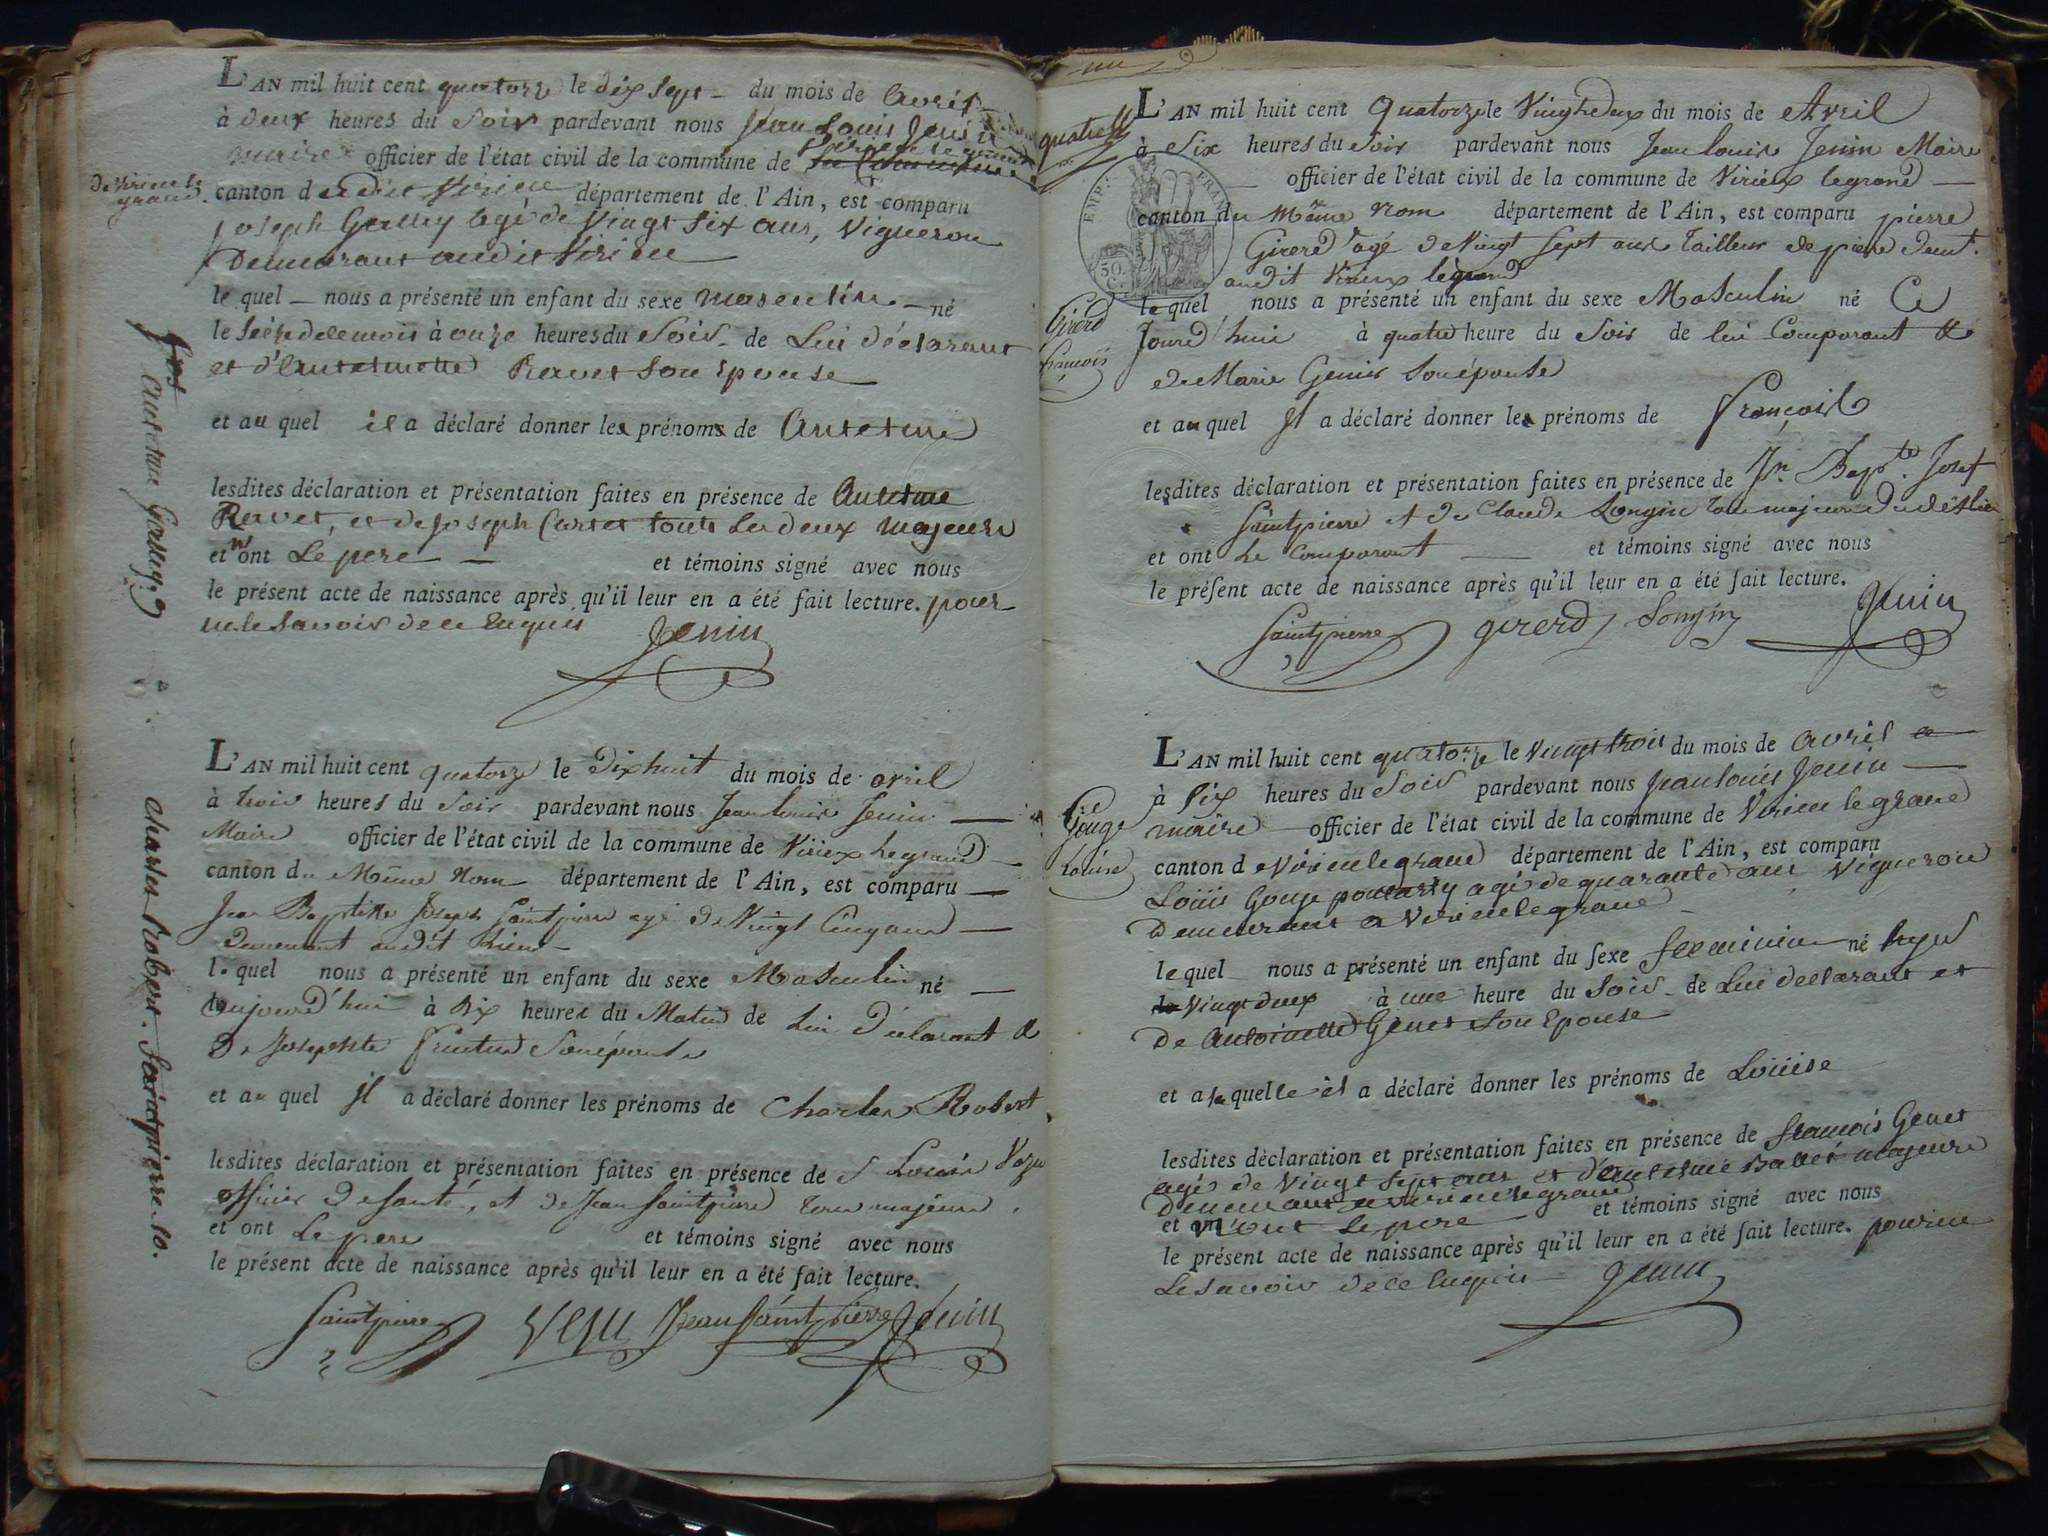 L'AN mil huit cent quatorze le dix sept du mois de avril
à deux heures du Soir pardevant nous Jean Louis Jenin
maire officier de l'état civil de la commune de
De Virieu le grand.
canton dudit Virieu département de l'Ain, est comparu
Joseph agé de Vingt Six ans, Vigneron
Demeurant audit Virieu
le quel nous a présenté un enfant du sexe masculin né
le Seize de ce mois à onze heures du Soir de Lui déclarant
et d'Antelmette Ravet Son Epouse
et au quel il a déclaré donner les prénoms de Antelme
lesdites déclaration et présentation faites en présence de Antelme
Ravet, et de Joseph Carter touts Les deux majeurs
et n'ont Le pere et témoins signé avec nous
le présent acte de naissance après qu'il leur en a été fait lecture. pour
ne le Savoir de ce Enquis Jenin
Antelme
L'AN mil huit cent quatorze le Dix huit du mois de avril
à trois heures du Soir pardevant nous Jean Louis Jenin
Maire officier de l'état civil de la commune de Virieux Le grand
canton du Même Nom département de l'Ain, est comparu
Jean Baptiste Joseph Saintpierre agé de Vingt Cinq ans
Demeurant audit Virieu
le quel nous a présenté un enfant du sexe Masculin né
aujourd'hui à Dix heures du Matin de Lui Déclarant &
De Josephte Son épouse
et au quel il a déclaré donner les prénoms de Charles Robert
lesdites déclaration et présentation faites en présence de S Louis Vezu
officier De Santé, et de Jean Saintpierre tous majeurs
et ont Le pere et témoins signé avec nous
le présent acte de naissance après qu'il leur en a été fait lecture.
Saintpierre Vezu Jean Saintpierre Jenin
Charles Robert. Saintpierre. 10.
quatre
L'AN mil huit cent Quatorze le Vingt deux du mois de Avril
à Six heures du Soir pardevant nous Jean Louis Jenin Maire
officier de l'état civil de la commune de Virieux legrand
canton du Même Nom département de l'Ain, est comparu pierre
Girerd agé de Vingt Sept ans tailleur de pierre demt.
audit Virieux legrand
EMP. FRAN
50. C.
Girerd
françois
le quel nous a présenté un enfant du sexe Masculin né Ce
Jourd'hui à quatre heure du Soir de lui Comparant &
de Marie Genin Son épouse
et au quel Il a déclaré donner les prénoms de françois
lesdites déclaration et présentation faites en présence de Jn. Bapte. Josef
Saintpierre et de Claude Longin tous majeurs
et ont Le Comparant et témoins signé avec nous
le présent acte de naissance après qu'il leur en a été fait lecture.
Saintpierre girerd Longin Jenin
L'AN mil huit cent quatorze le Vingt trois du mois de avril
à Six heures du Soir pardevant nous Jean Louis Jenin
Gouge
Louise
maire officier de l'état civil de la commune de Virieu le grand
canton de Virieu le grand département de l'Ain, est comparu
Louis Gouge agé de quarante ans Vigneron
Demeurant a Virieu le grand
le quel nous a présenté un enfant du sexe feminin né
le Vingt deux à une heure du Soir de Lui déclarant et
De Antoinette Genet Son Epouse
et a la quelle il a déclaré donner les prénoms de Louise
lesdites déclaration et présentation faites en présence de françois Genet
agé de Vingt Sept ans et d'antelme Ravet majeurs
Demeurant a Virieu le grand
et n'ont Le pere et témoins signé avec nous
le présent acte de naissance après qu'il leur en a été fait lecture. pour ne
Le Savoir de ce Enquis Jenin